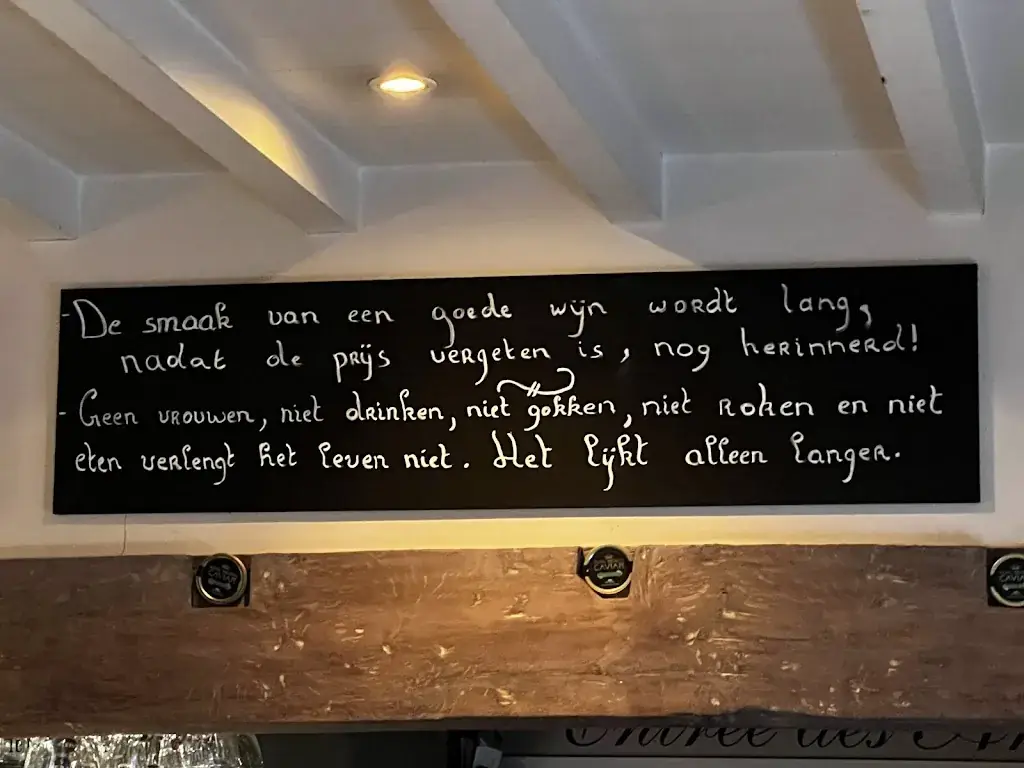 - De smaak van een goede wijn wordt lang,
nadat de prijs vergeten is, nog herinnerd!
- Geen vrouwen, niet drinken, niet gokken, niet roken en niet
eten verlengt het leven niet. Het lijkt alleen langer.
CAVIAR
CAVIAR
CAVIAR
Entrée des